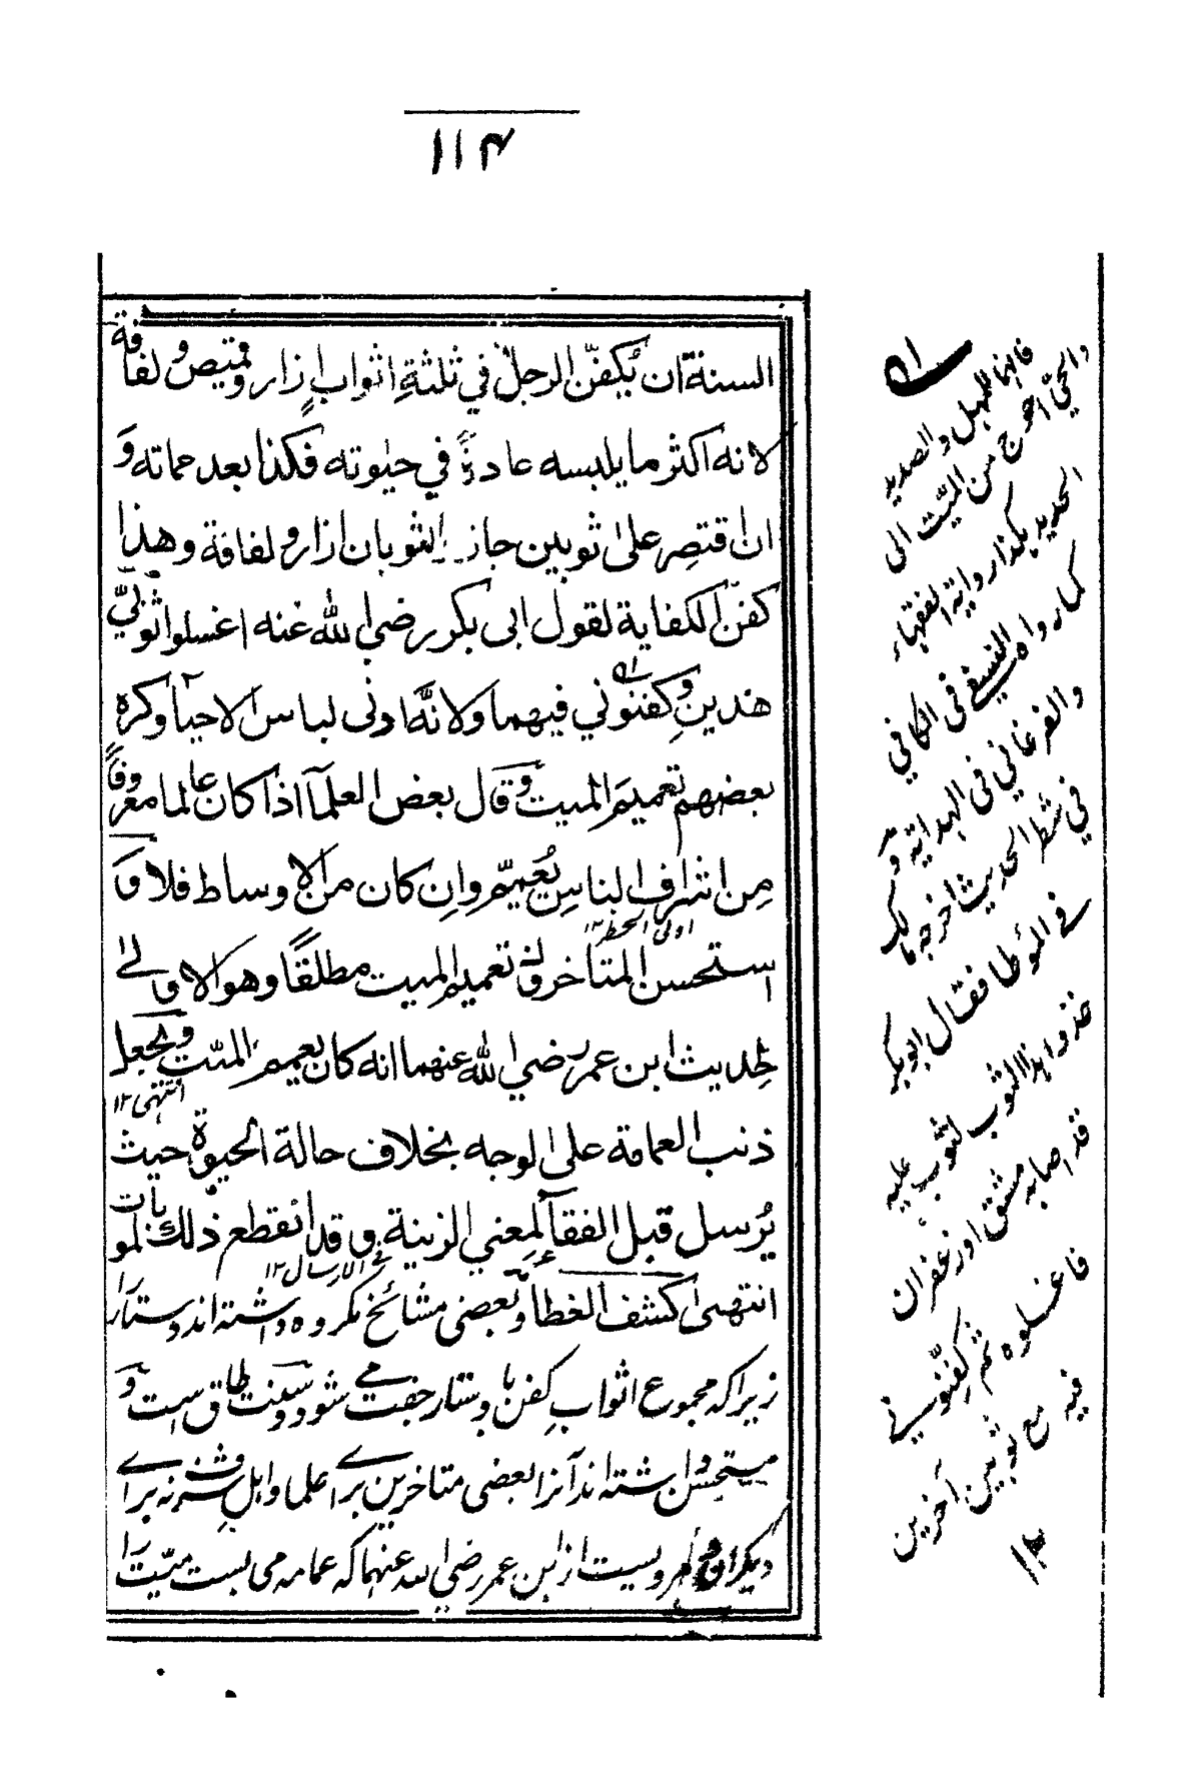 ١١٤
السنة ان يُكفّن الرجل في ثلثةِ اثوابٍ ازار وقميص ولفافة
لانه اكثر ما يلبسه عادةً في حيٰوته فكذا بعد مماته وَ
ان اقتصِر على ثوبين جاز الثوبان ازار ولفافة وهذا
كفن الكفاية لقول ابى بكر رضي الله عنه اغسلوا ثوبيّ
هٰذين وكفنوني فيهما ولانّه ادنى لباس الاحيآ وكره
بعضهم تعميمَ الميت وقال بعض العلمآ اذا كان عالما معروفاً
مِن اشراف الناسِ يُعمّم وانِ كان من الاوساط فلا وَ
اولى الحظر ١٢
استحسن المتأخرون تعميم الميت مطلقًا وهو الاولى
لحديث ابن عمر رضي الله عنهما انه كان يعمم الميّت ويجعل
انتهى ١٢
ذنب العمامة على الوجه بخلاف حالة الحيوة حيث
يُرسل قبل الفقآ لمعنى الزينة وقد انقطع ذلك بالموت
الارسال ١٢
انتهى كشف الغطا وبعضى مشائخ مكروه داشته اند دستار را
زيرا كه مجموع اثواب كفن با دستار جفت مے شود وسنت طاق است و
مستحسن داشته اند آنرا بعضى متاخرين براے علما واهل شرف نه براے
ديگران ومروبست از ابن عمر رضى الله عنهما كه عمامه مى بست ميّت را
فانها للمهل والصديد
والحيّ احوج من الميّت الى
الجديد هكذا رواية الفقهاء
كما رواه النسفي فى الكافي
والفرغاني فى الهداية و
في شطر الحديث اخرجه مالك
في المؤطا فقال ابوبكر
خذوا هذا الثوب لثوب عليه
قد اصابه مشق او زعفران
فاغسلوه ثم كفّنوني
فيه مع ثوبين آخرين
١٢